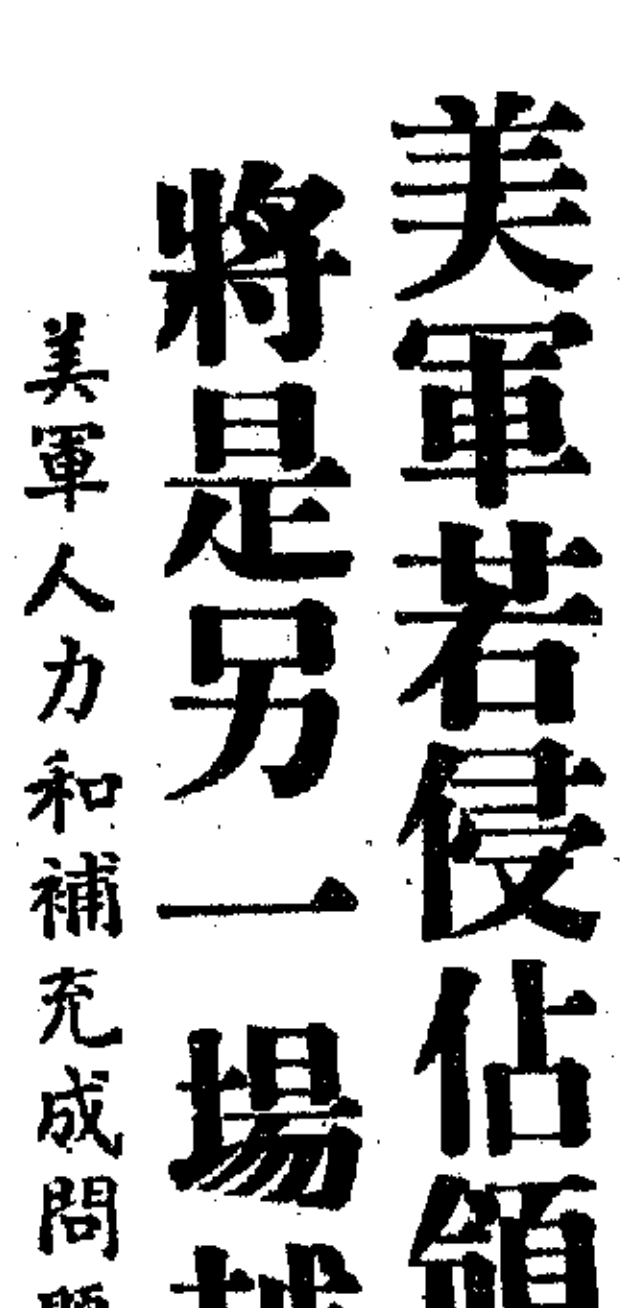 美軍若侵佔領
將是另一場
美軍人力和補充成問題